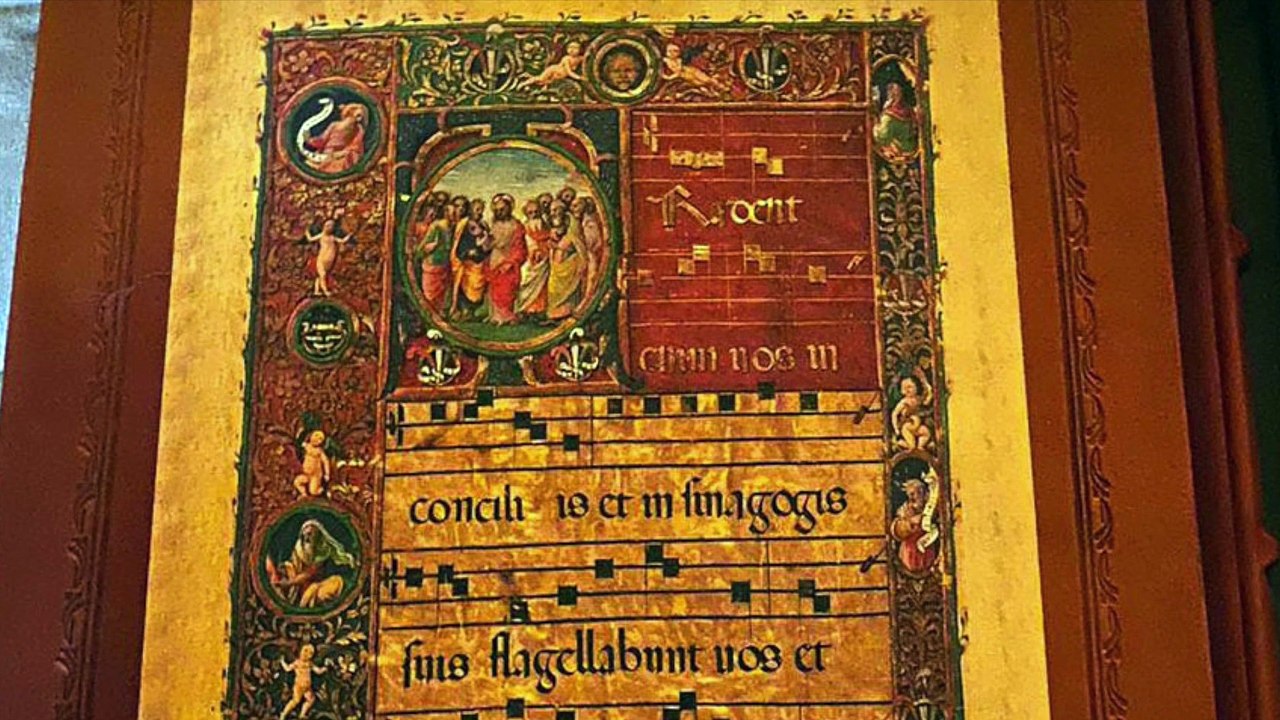 Radent
enim uos in
concili is et in ſinagogis
ſuis flagellabunt uos et